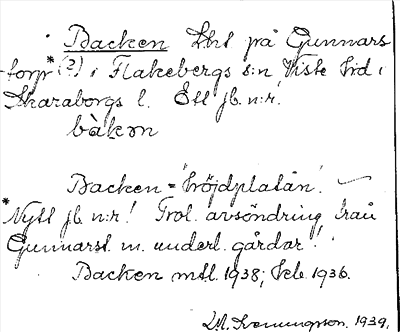 Backen Lht på Gunnars
torp* (?) i Flakebergs s:n Viste hrd i
Skaraborgs l. Ett jb. n:r.
bàkən
Backen = 'höjdplatån'.
*Nytt jb. n:r! Trol. avsöndring från
Gunnarst. m. underl. gårdar!
Backen mtl. 1938, feb. 1936.
1939.